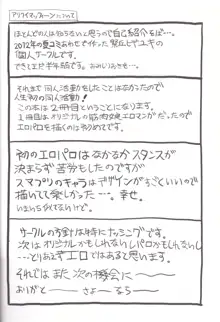 アリフイマッフィーンについて
ほとんどの人は知らないと思うので自己紹介をば…。
2012年の夏コミあわせでイキナリ
個人サークルです。
できてまだ半年弱です。おみしりおきを…。
それまで同人活動をしたことはなかったので
人生初の同人活動!
この本は2冊目ということになります。
1冊目はオリジナルの筋肉娘エロマンガだった。
エロパロを描くのは初めてです。
初のエロパロでなかなかスタンスが
決まらず苦労したのですが
スマプリのキャラはデザインがすごくいいので
描いてて楽しかった…幸せ。
いまいちなれてないけど。
サークルの方針は特にナッシングです。
次はオリジナルかもしれないしパロかもしれないし
…とりあえずエロではあると思います。
それではまた次の機会に〜
おりがと〜さよ〜なら〜